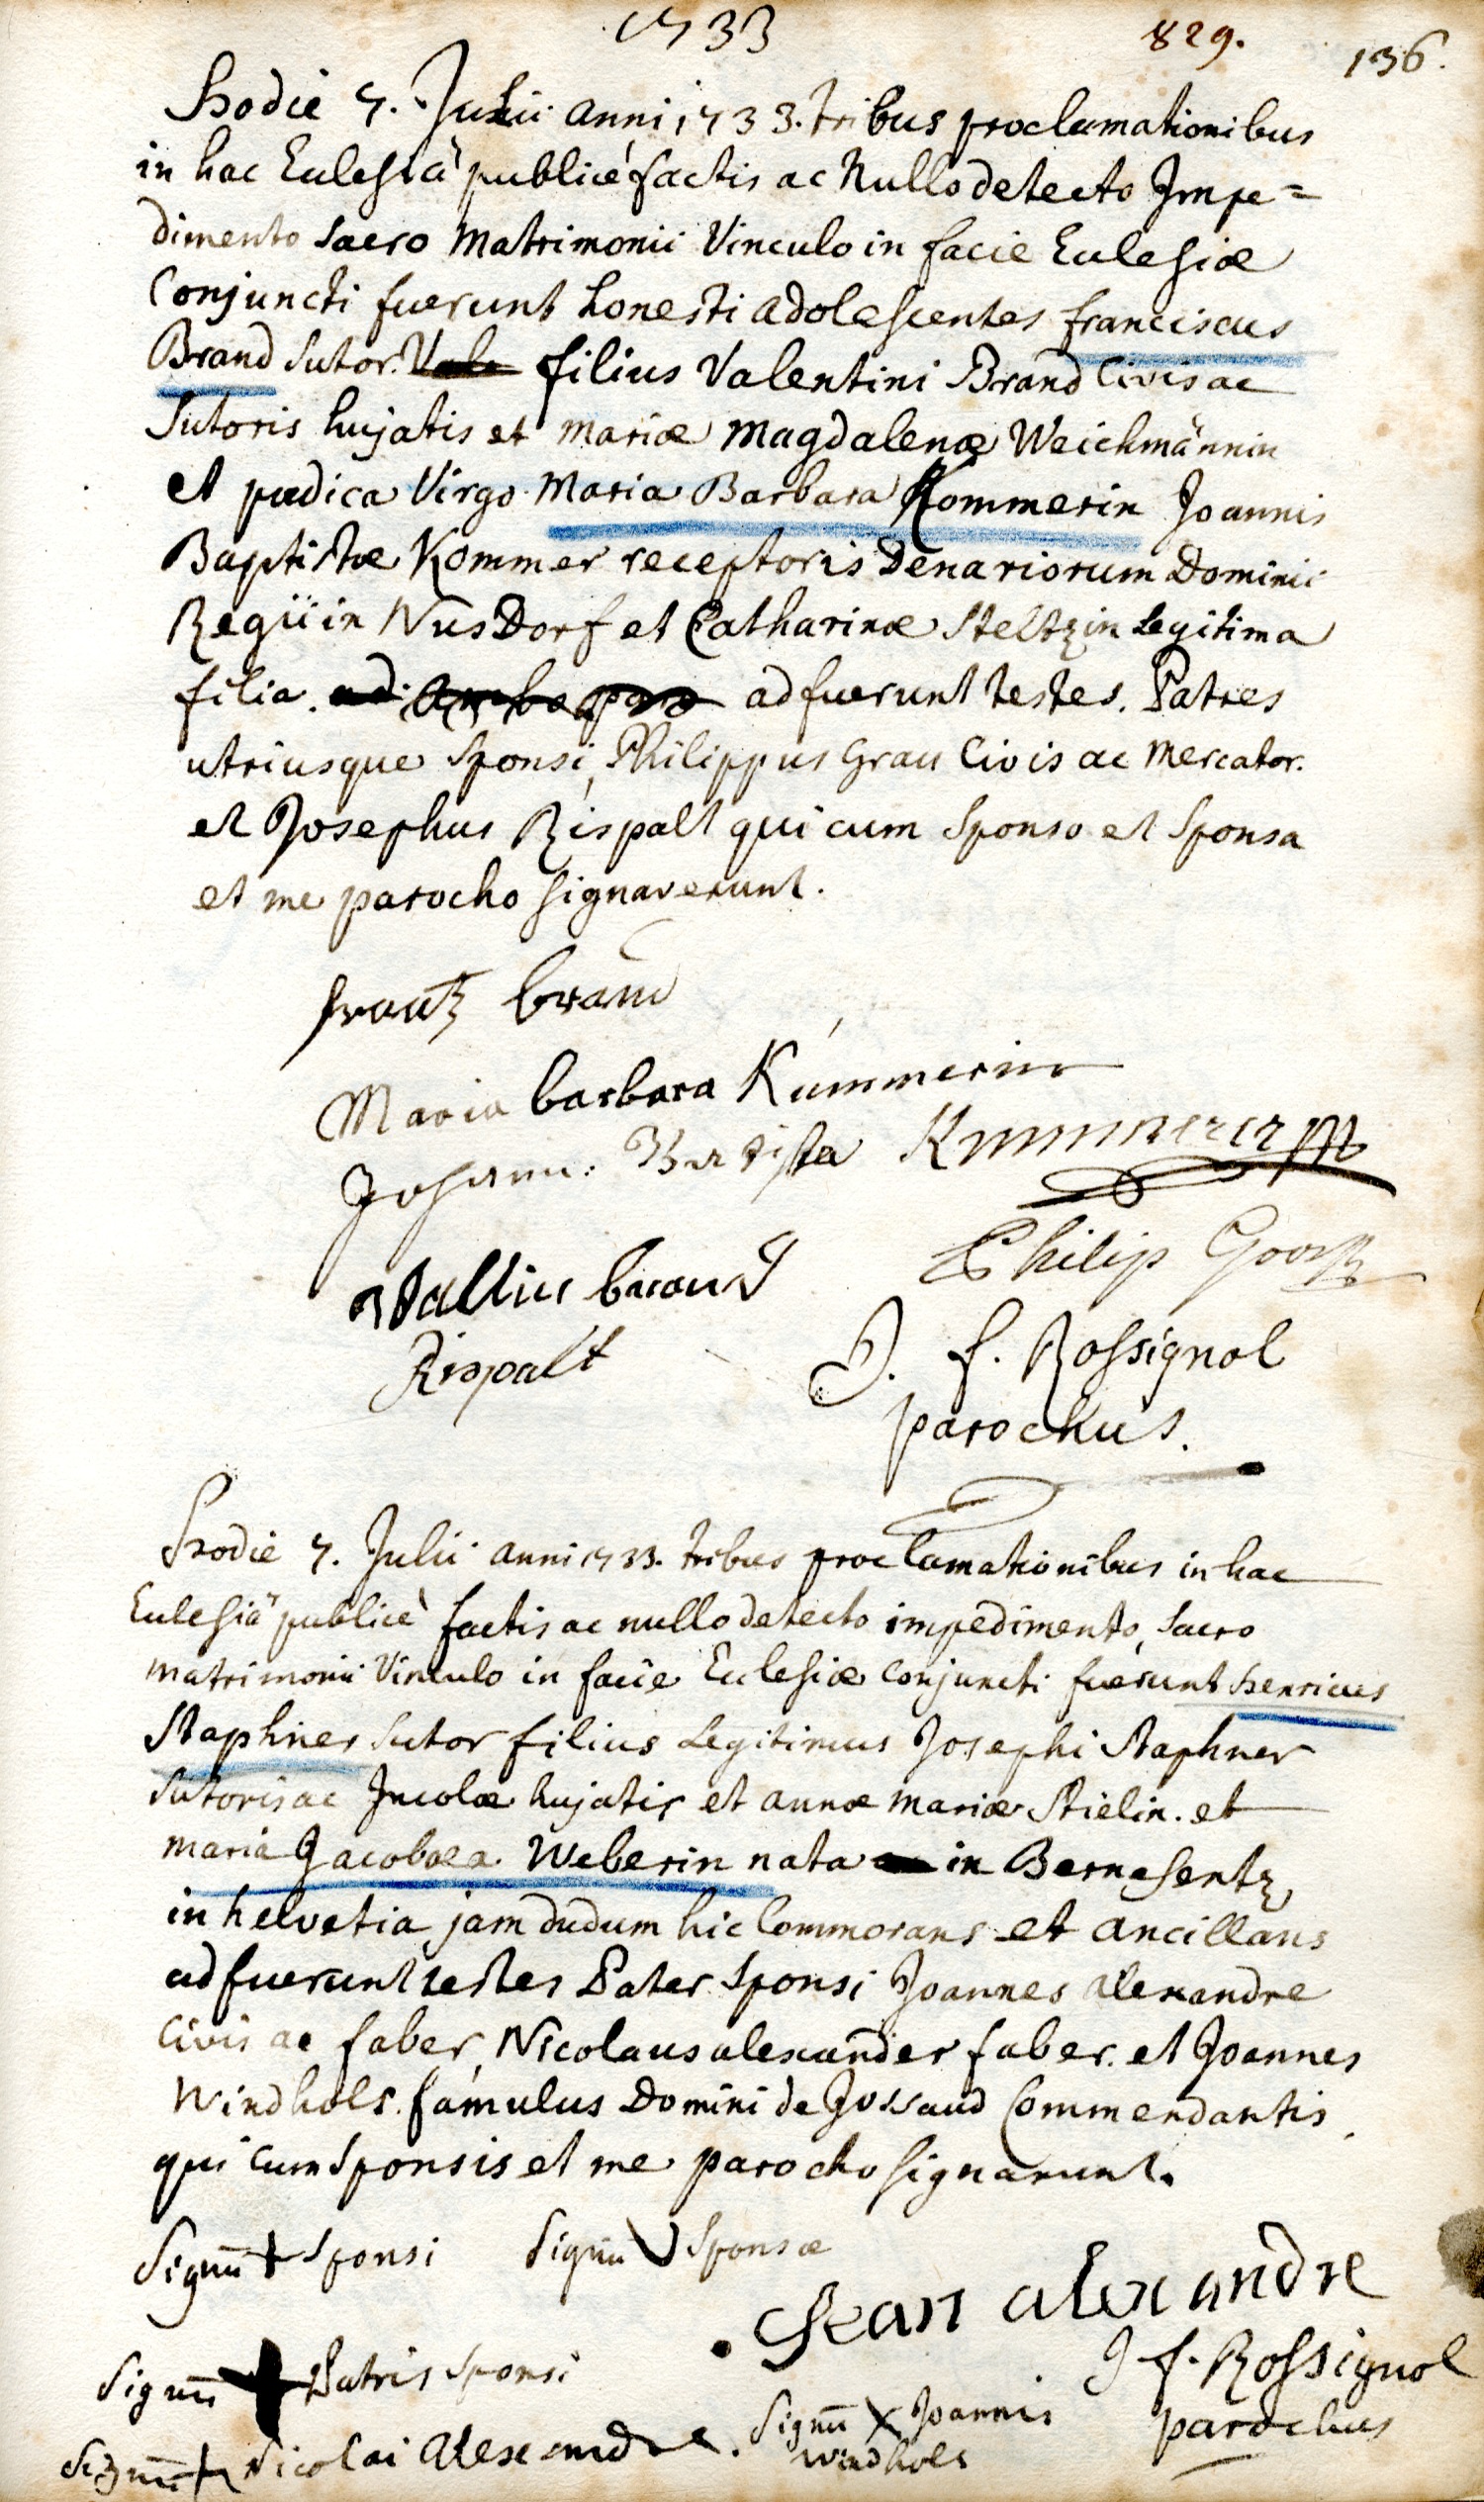 1733 829. 136.
Hodie 7. Julii anni 1733. tribus proclamationibus
in hac Eclesiâ publicé factis ac Nullo detecto Impe=
dimento Sacro Matrimonii Vinculo in facie Eclesiæ
Conjuncti fuerunt honesti adolescentes franciscus
Brand Sutor. filius Valentini Brand Civis ac
Sutoris hujatis et mariæ Magdalenæ Weichmännin
et pudica Virgo Maria Barbara Kommerin Joannis
Baptistæ Kommer receptoris Denariorum Dominii
Regii in Nusdorf et Catharinæ Steltzin Legitima
filia. adfuerunt testes. Patres
utriusque Sponsi, Philippus Grau Civis ac Mercator.
et Josephus Rispalt qui cum Sponso et Sponsa
et me parocho signaverunt.
frantz brand
Maria barbara Kummerin
Johann: Batista Kummerer
Philip
Rispalt
J. f. Rossignol
parochus.
Hodie 7. Julii anni 1733. tribus proclamationibus in hac
Eclesiâ publicè factis ac nullo detecto impedimento, Sacro
matrimonii Vinculo in facie Eclesiæ Conjuncti fuerunt henricus
Staphner Sutor filius Legitimus Josephi Staphner
Sutoris ac Incolæ hujatis et annæ mariæ Stielin. et
maria Jacobæa Weberin nata in Bernesentz,
in helvetia jam dudum hic Commorans et ancillans
adfuerunt testes Pater Sponsi Joannes alexandre
Civis ac faber, Nicolaus alexander faber. et Joannes
Windhols. famulus Domini de Jossaud Commendantis,
qui cum Sponsis et me parocho signarunt.
Signū + Sponsi Signū Sponsæ
Jean alexandre
Signū + Patris Sponsi J f. Rossignol
parochus
Signū + Nicolai Alexandre. Signū X Joannis
windhols